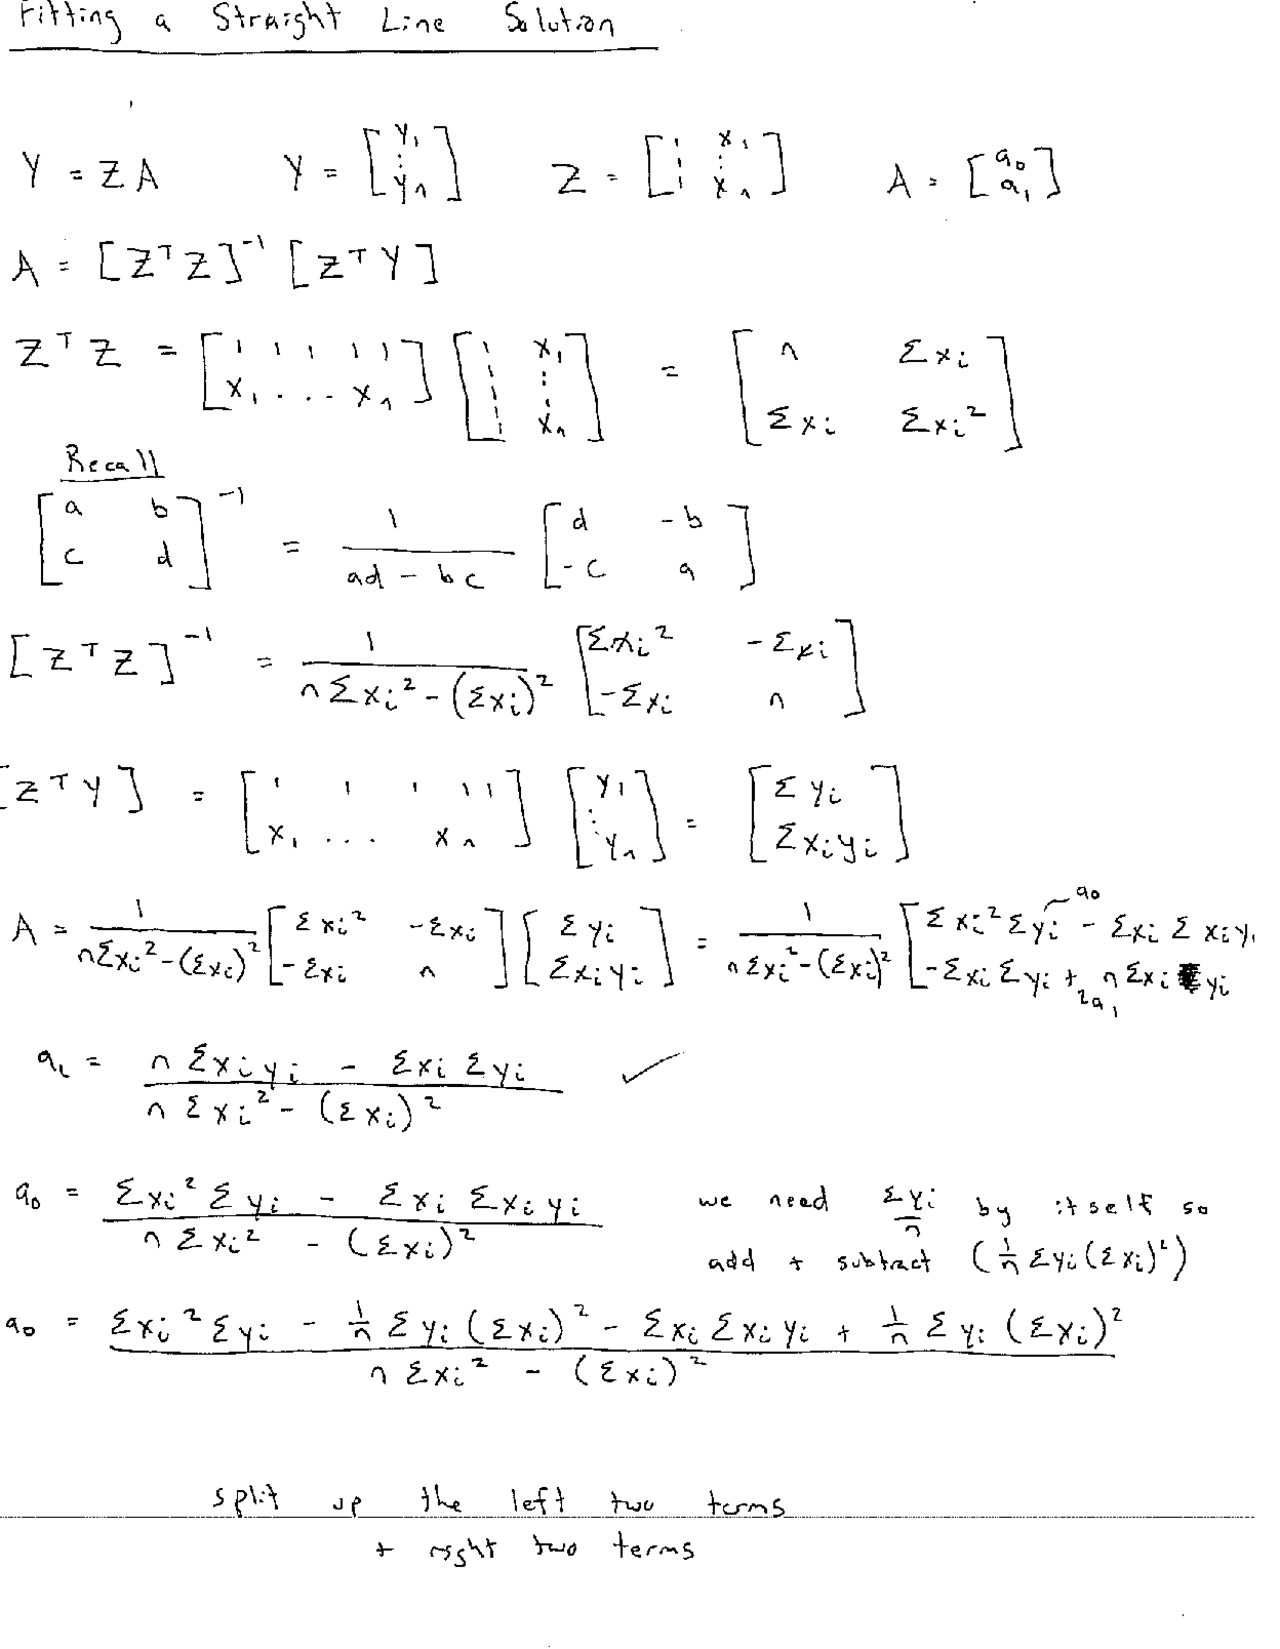 Fitting a Straight Line Solution
Y = Z A Y = [y₁ ⋮ yₙ] Z = [1 x₁ ⋮ ⋮ 1 xₙ] A = [a₀ a₁]
A = [ZᵀZ]⁻¹ [ZᵀY]
ZᵀZ = [1 1 1 1 1 x₁ ... xₙ] [1 x₁ ⋮ ⋮ 1 xₙ] = [n Σxᵢ Σxᵢ Σxᵢ²]
Recall
[a b c d]⁻¹ = 1/(ad - bc) [d -b -c a]
[ZᵀZ]⁻¹ = 1/(nΣxᵢ² - (Σxᵢ)²) [Σxᵢ² -Σxᵢ -Σxᵢ n]
[ZᵀY] = [1 1 1 1 1 x₁ ... xₙ] [y₁ ⋮ yₙ] = [Σyᵢ Σxᵢyᵢ]
A = 1/(nΣxᵢ² - (Σxᵢ)²) [Σxᵢ² -Σxᵢ -Σxᵢ n] [Σyᵢ Σxᵢyᵢ] = 1/(nΣxᵢ² - (Σxᵢ)²) [Σxᵢ²Σyᵢ - ΣxᵢΣxᵢyᵢ -ΣxᵢΣyᵢ + nΣxᵢyᵢ] a₀ a₁
a₁ = (nΣxᵢyᵢ - ΣxᵢΣyᵢ)/(nΣxᵢ² - (Σxᵢ)²) ✓
a₀ = (Σxᵢ²Σyᵢ - ΣxᵢΣxᵢyᵢ)/(nΣxᵢ² - (Σxᵢ)²) we need Σyᵢ/n by itself so
add + subtract (1/n Σyᵢ(Σxᵢ)²)
a₀ = (Σxᵢ²Σyᵢ - 1/n Σyᵢ(Σxᵢ)² - ΣxᵢΣxᵢyᵢ + 1/n Σyᵢ(Σxᵢ)²)/(nΣxᵢ² - (Σxᵢ)²)
split up the left two terms
+ right two terms